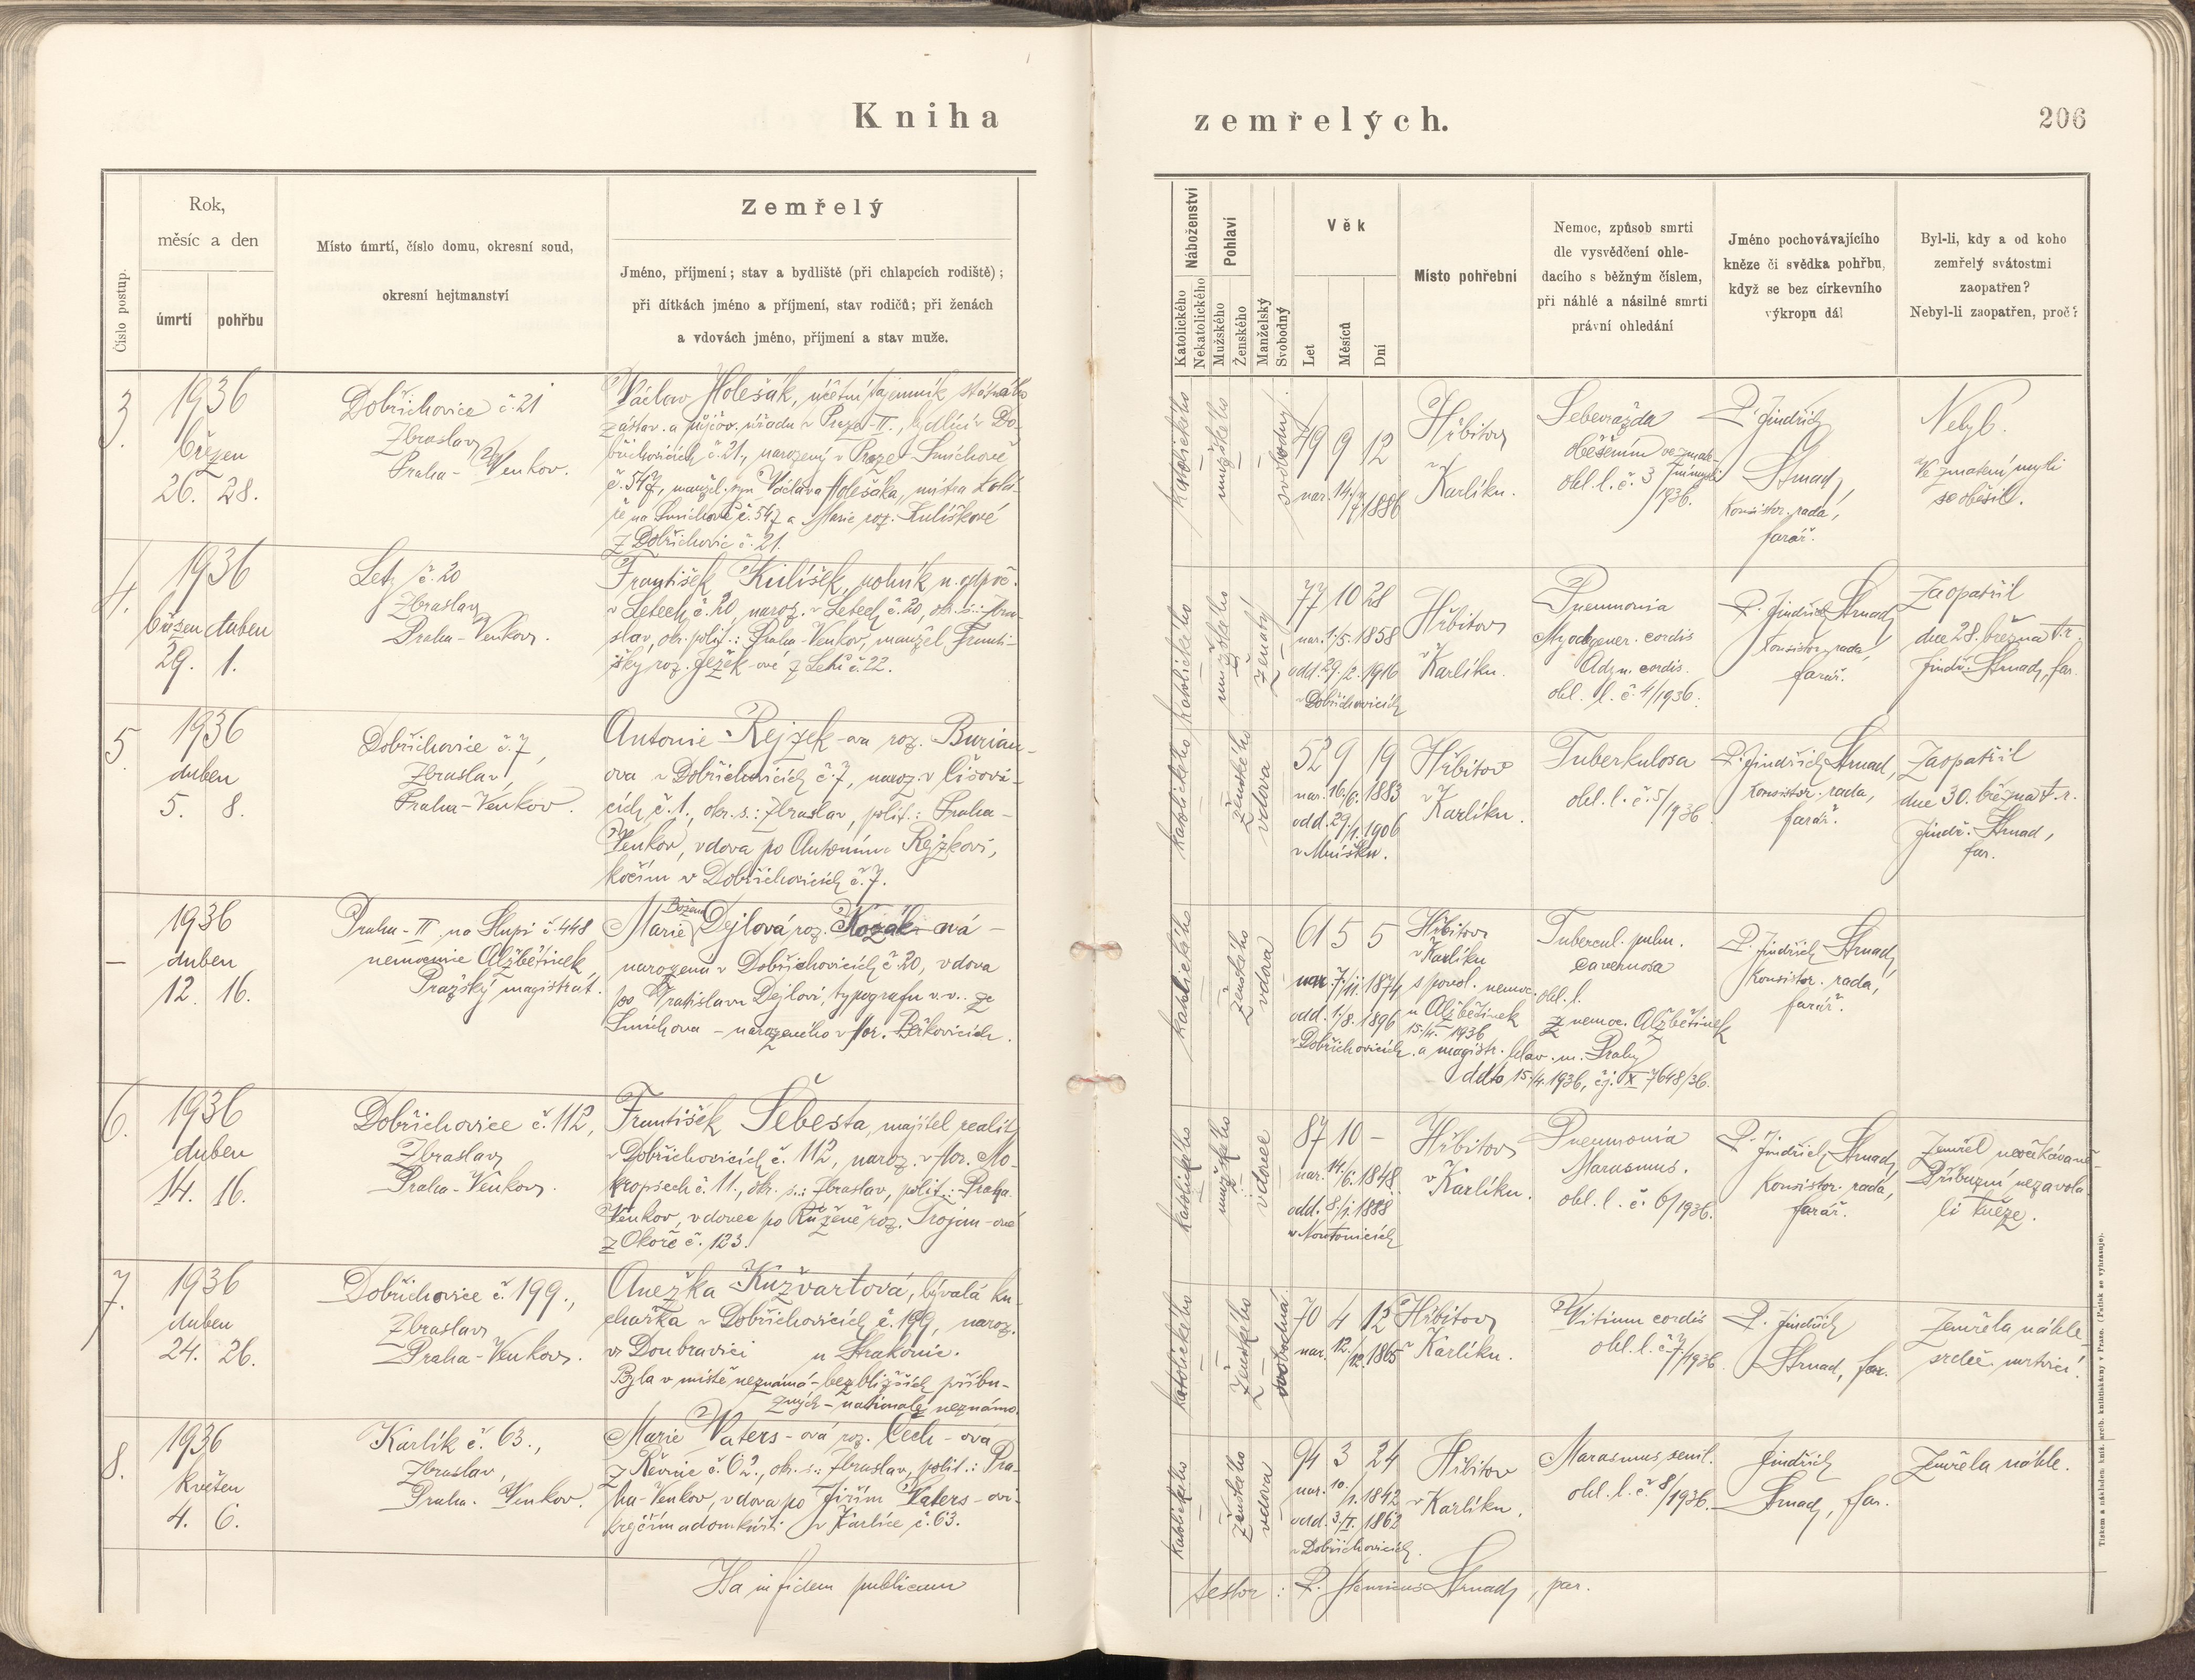 Kniha zemřelých.
206
Číslo postup.
Rok,
měsíc a den
úmrtí
pohřbu
Místo úmrtí, číslo domu, okresní soud,
okresní hejtmanství
Zemřelý
Jméno, příjmení; stav a bydliště (při chlapcích rodiště);
při dítkách jméno a příjmení, stav rodičů; při ženách
a vdovách jméno, příjmení a stav muže.
Náboženství
Katolického
Nekatolického
Pohlaví
Mužského
Ženského
Manželský
Svobodný
Věk
Let
Měsíců
Dní
Místo pohřební
Nemoc, způsob smrti
dle vysvědčení ohle-
dacího s běžným číslem,
při náhlé a násilné smrti
právní ohledání
Jméno pochovávajícího
kněze či svědka pohřbu,
když se bez církevního
výkropu dál
Byl-li, kdy a od koho
zemřelý svátostmi
zaopatřen?
Nebyl-li zaopatřen, proč?
3.
1936
březen
26. 28.
Dobřichovice č. 21
Zbraslav
Praha-Venkov.
Václav Holešák, účetní tajemník státního
zástav. a půjčov. úřadu v Praze-II., bydlící v Do-
břichovicích č. 21., narozený v Praze-Smíchově
č. 547, manžel. syn Václava Holešáka, mistra kolá-
ře na Smíchově č. 547 a Marie roz. Kulíškové
z Dobřichovic č. 21.
katolického
mužského
svobodný.
49 9 12
nar. 14./7 1886
Hřbitov
v
Karlíku.
Sebevražda
oběšením ve zmat-
ohl. l. č. 3
/1936.
P. Jindřich
Strnad,
konsistor. rada,
farář.
Nebyl.
Ve zmatení mysli
se oběsil.
4.
1936
březen duben
29. 1.
Lety č. 20
Zbraslav
Praha-Venkov.
František Kulíšek, rolník n. odpoč.
v Letech č. 20, naroz. v Letech č. 20, okr. s.: Zbra-
slav, okr. polit.: Praha-Venkov, manžel Franti-
šky roz. Ježek-ové z Letů č. 22.
katolického
mužského
ženatý
77 10 28
nar. 1./5. 1858
odd. 29./2. 1916
v Dobřichovicích
Hřbitov
v
Karlíku.
Pneumonia
Myodegener. cordis
Adyn. cordis.
ohl. l. č. 4/1936.
P. Jindřich Strnad,
konsistor. rada,
farář.
Zaopatřil
dne 28. března t. r.
Jindř. Strnad, far.
5.
1936
duben
5. 8.
Dobřichovice č. 7,
Zbraslav,
Praha-Venkov.
Antonie Rejzek-ova roz. Burian-
ova v Dobřichovicích č. 7, naroz. v Číšovi-
cích č. 1., okr. s.: Zbraslav, polit.: Praha-
Venkov, vdova po Antonínu Rejzkovi,
kočím v Dobřichovicích č. 7.
katolického
ženského
vdova
52 9 19
nar. 16./6. 1883
odd. 29./1. 1906
v Mníšku.
Hřbitov
v
Karlíku.
Tuberkulosa
ohl. l. č. 5/1936.
P. Jindřich Strnad,
konsistor. rada,
farář.
Zaopatřil
dne 30. března t. r.
Jindř. Strnad,
far.
–
1936
duben
12. 16.
Praha-II. na Slupi č. 448
nemocnice Alžbětinek
Pražský magistrát.
Božena
Marie Dejlová roz. Kozák-ová –
narozená v Dobřichovicích č. 20, vdova
po Vratislavu Dejlovi, typografu v. v. ze
Smíchova – narozeného v Hor. Beřkovicích.
katolického
ženského
vdova
61 5 5
nar. 7./11. 1874
odd. 1./8. 1896
v Dobřichovicích
Hřbitov
v Karlíku
s povol. nemoc.
u Alžbětinek
15./4. 1936
a magistr. hlav. m. Prahy
ddto 15./4. 1936, čj. X 7648/36.
Tubercul. pulm.
cavernosa
ohl. l.
z nemoc. Alžbětinek
P. Jindřich Strnad,
konsistor. rada,
farář.
6.
1936
duben
14. 16.
Dobřichovice č. 112,
Zbraslav
Praha-Venkov.
František Šebesta, majitel realit
v Dobřichovicích č. 112, naroz. v Hor. Mo-
kropsech č. 11., okr. s.: Zbraslav, polit.: Praha-
Venkov, vdovec po Růženě roz. Trojan-ové
z Okoře č. 123.
katolického
mužského
vdovec
87 10 –
nar. 14./6. 1848.
odd. 8./1. 1888
v Noutonicích
Hřbitov
v
Karlíku.
Pneumonia
Marasmus.
ohl. l. č. 6/1936.
P. Jindřich Strnad,
konsistor. rada,
farář.
Zemřel neočekávaně.
Příbuzní nezavola-
li kněze.
7.
1936
duben
24. 26.
Dobřichovice č. 199.,
Zbraslav
Praha-Venkov.
Anežka Kužvartová, bývalá ku-
chařka v Dobřichovicích č. 199, naroz.
v Doubravici u Strakonic.
Byla v místě neznámá – bez bližších příbu-
zných – nationale neznámo.
katolického
ženského
svobodná.
70 4 12
nar. 12./12. 1865
Hřbitov
v Karlíku.
Vitium cordis
ohl. l. č. 7/1936.
P. Jindřich
Strnad, far.
Zemřela náhle
srdeč. mrtvicí.
8.
1936
květen
4. 6.
Karlík č. 63.,
Zbraslav,
Praha-Venkov.
Marie Vaters-ová roz. Čech-ová
z Řevnic č. 62., okr. s.: Zbraslav, polit.: Pra-
ha-Venkov, vdova po Jiřím Vaters-ovi
krejčím a domkáři v Karlíce č. 63.
katolického
ženského
vdova
94 3 24
nar. 10./1. 1842
odd. 3./II. 1862
v Dobřichovicích.
Hřbitov
v Karlíku.
Marasmus senil.
ohl. l. č. 8/1936.
Jindřich
Strnad, far.
Zemřela náhle.
Ita in fidem publicam
testor: P. Henricus Strnad, par.
Tiskem a nákladem kníž. arcib. knihtiskárny v Praze. (Patisk se vyhrazuje).